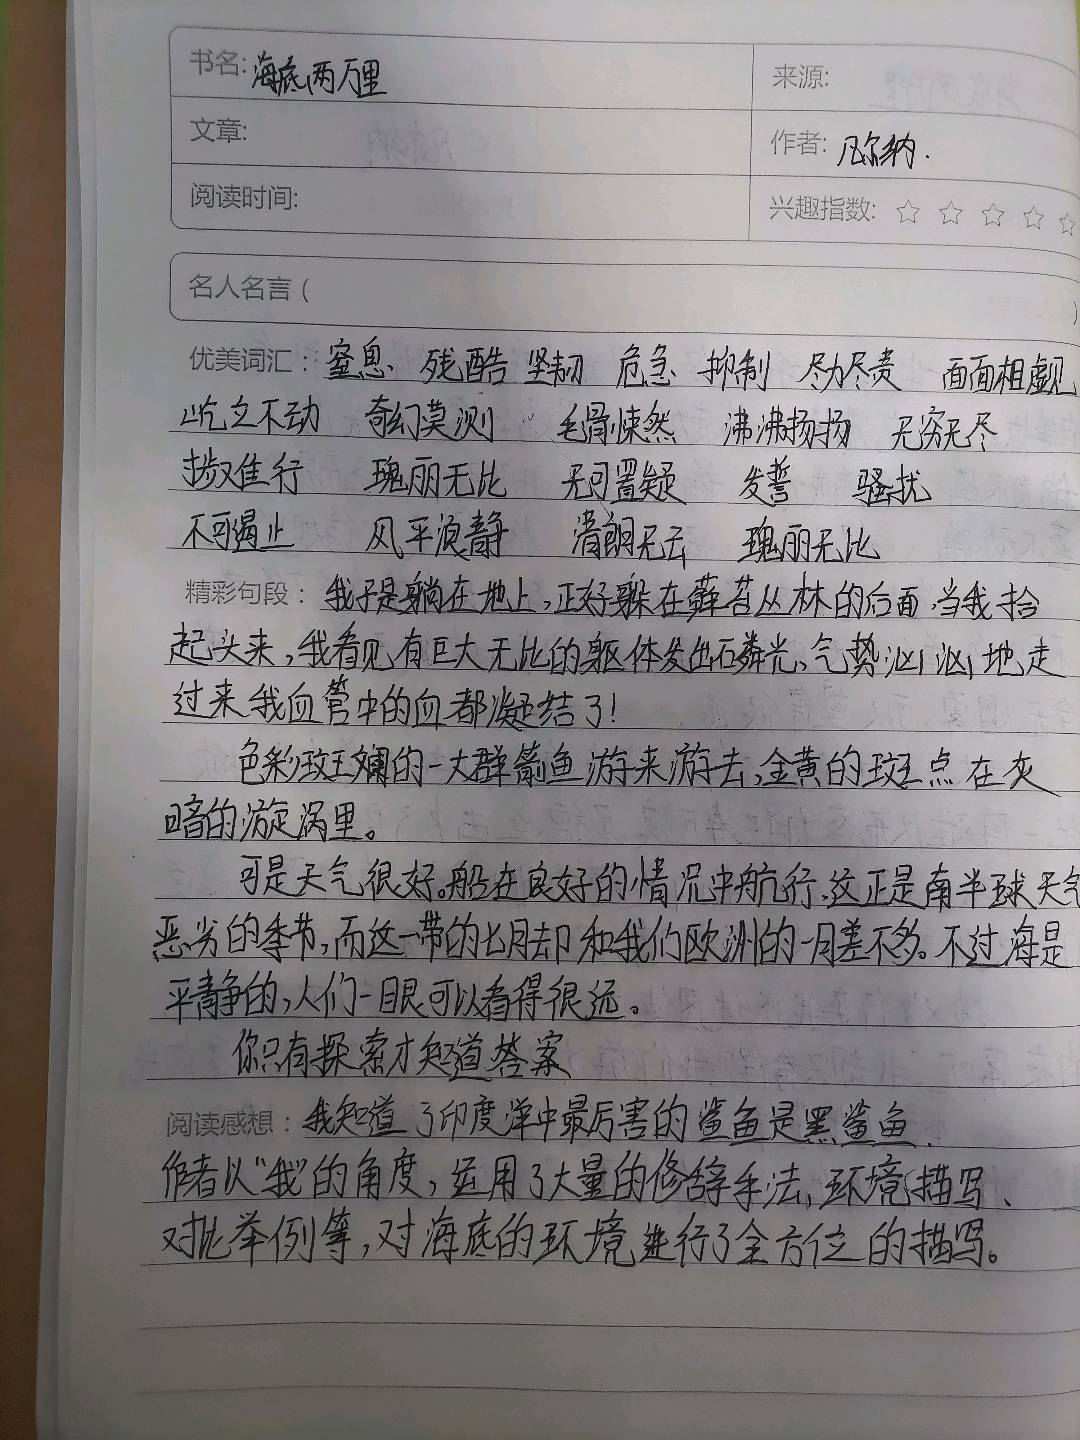 书名: 海底两万里
来源:
文章:
作者: 凡尔纳.
阅读时间:
兴趣指数: ☆ ☆ ☆ ☆ ☆
名人名言 ( )
优美词汇: 窒息 残酷 坚韧 危急 抑制 尽力尽责 面面相觑
屹立不动 奇幻莫测 毛骨悚然 沸沸扬扬 无穷无尽
择道而行 瑰丽无比 无可置疑 发誓 骚扰
不可遏止 风平浪静 清朗无云 瑰丽无比
精彩句段: 我于是躺在地上,正好躲在藓苔丛林的后面,当我抬
起头来,我看见有巨大无比的躯体发出磷光,气势汹汹地走
过来我血管中的血都凝结了!
色彩斑斓的一大群箭鱼游来游去,金黄的斑点在灰
暗的漩涡里。
可是天气很好。船在良好的情况中航行,这正是南半球天气
恶劣的季节,而这一带的七月却和我们欧洲的一月差不多。不过海是
平静的,人们一眼可以看得很远。
你只有探索才知道答案
阅读感想: 我知道了印度洋中最厉害的鲨鱼是黑鲨鱼.
作者以"我"的角度,运用了大量的修辞手法,环境描写、
对比举例等,对海底的环境进行了全方位的描写。